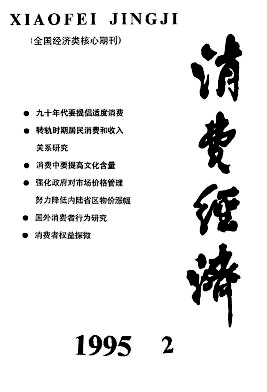 XIAOFEI JINGJI
(全国经济类核心期刊)
消费经济
● 九十年代要提倡适度消费
● 转轨时期居民消费和收入
关系研究
● 消费中要提高文化含量
● 强化政府对市场价格管理
努力降低内陆省区物价涨幅
● 国外消费者行为研究
● 消费者权益探微
1995 2